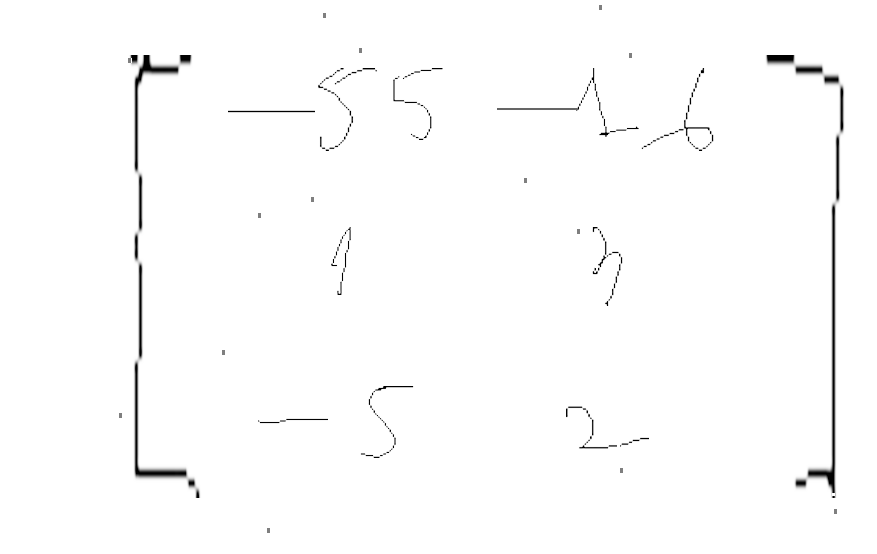 -55 -16
1 3
-5 2